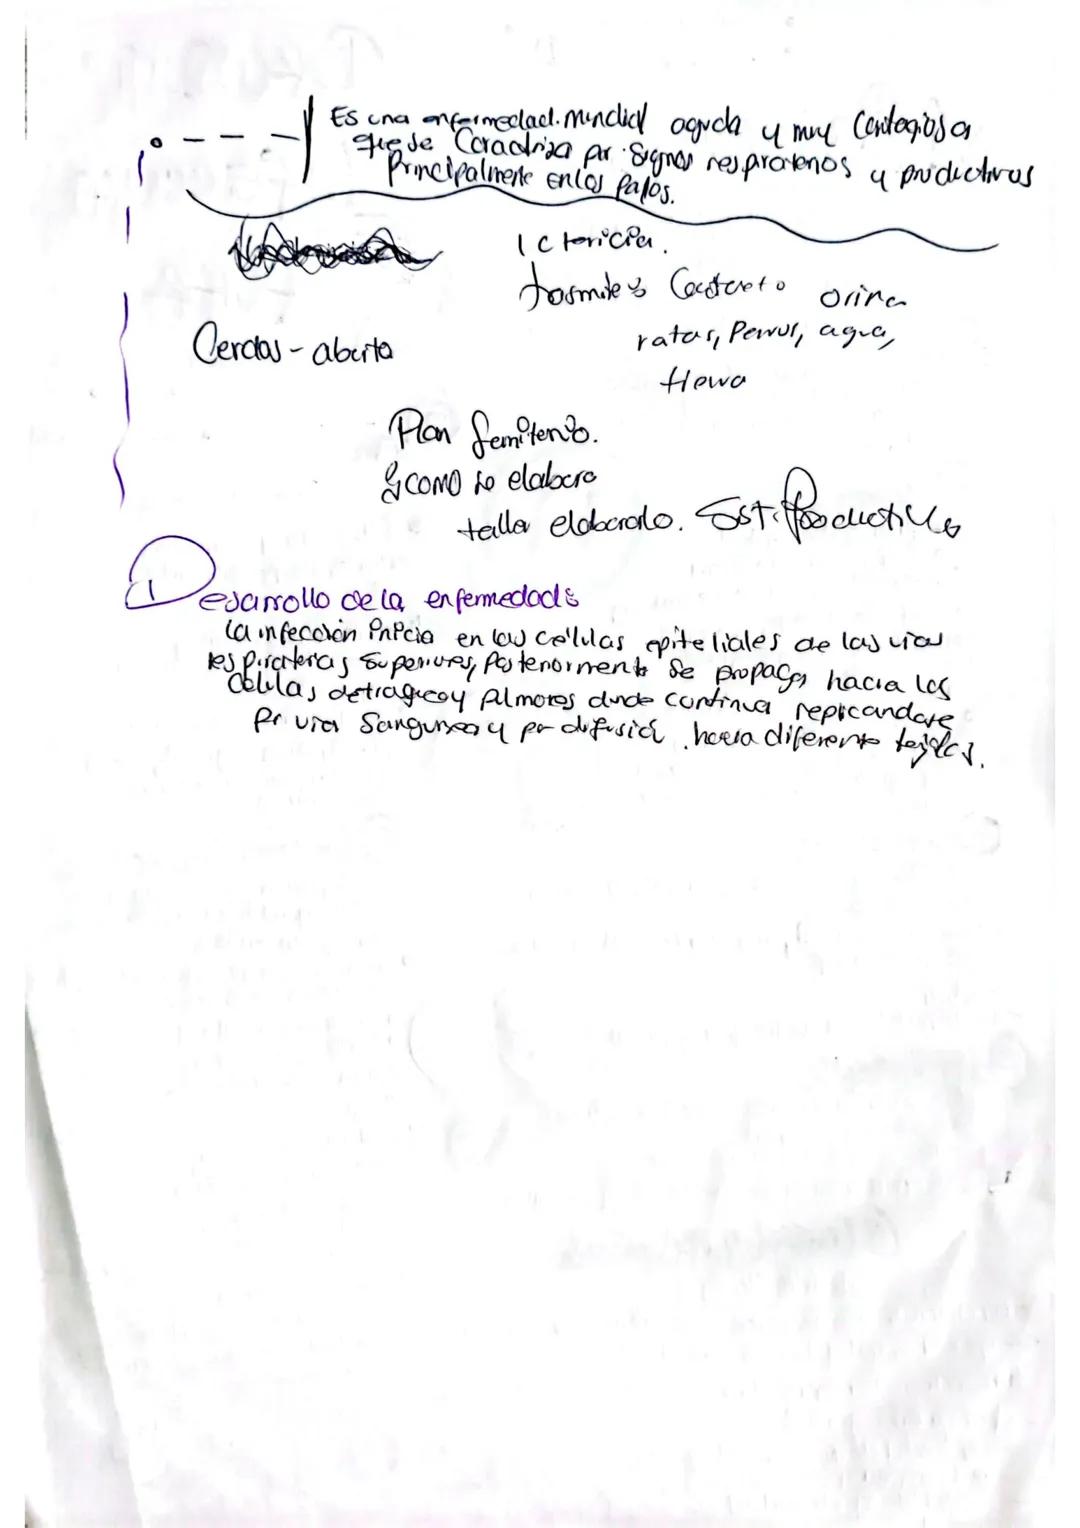 Es una enfermedad mundial aguda y muy contagiosa
que se Caractriza por Signos respiratorios y productivos
Principalmente en los Pafos.
Ictericia.
Cerdas - aburta
orina
ratas, Perros, agua,
Plan
como se elaboro
taller elaborado. Sist. Productivo
1 Desarrollo de la enfermedad:
La infección inicia en las células epiteliales de las vias
respiratorias Superiores, Posteriormente Se propaga hacia las
Células y pulmones donde continua repicandose
Por via Sanguinea y por difusión hacia diferente tejidos.